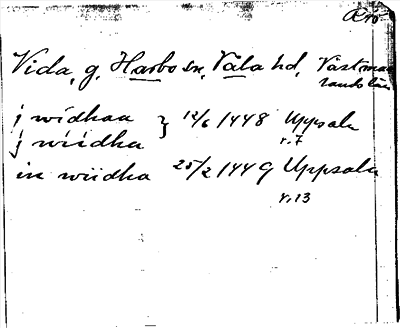 Arö
Vida, g, Harbo sn, Våla hd, Västman
lands län
j wídhaa } 12/6 1448 Uppsala
j wiídha r.7
in wiidha 25/2 1449 Uppsala
r.13